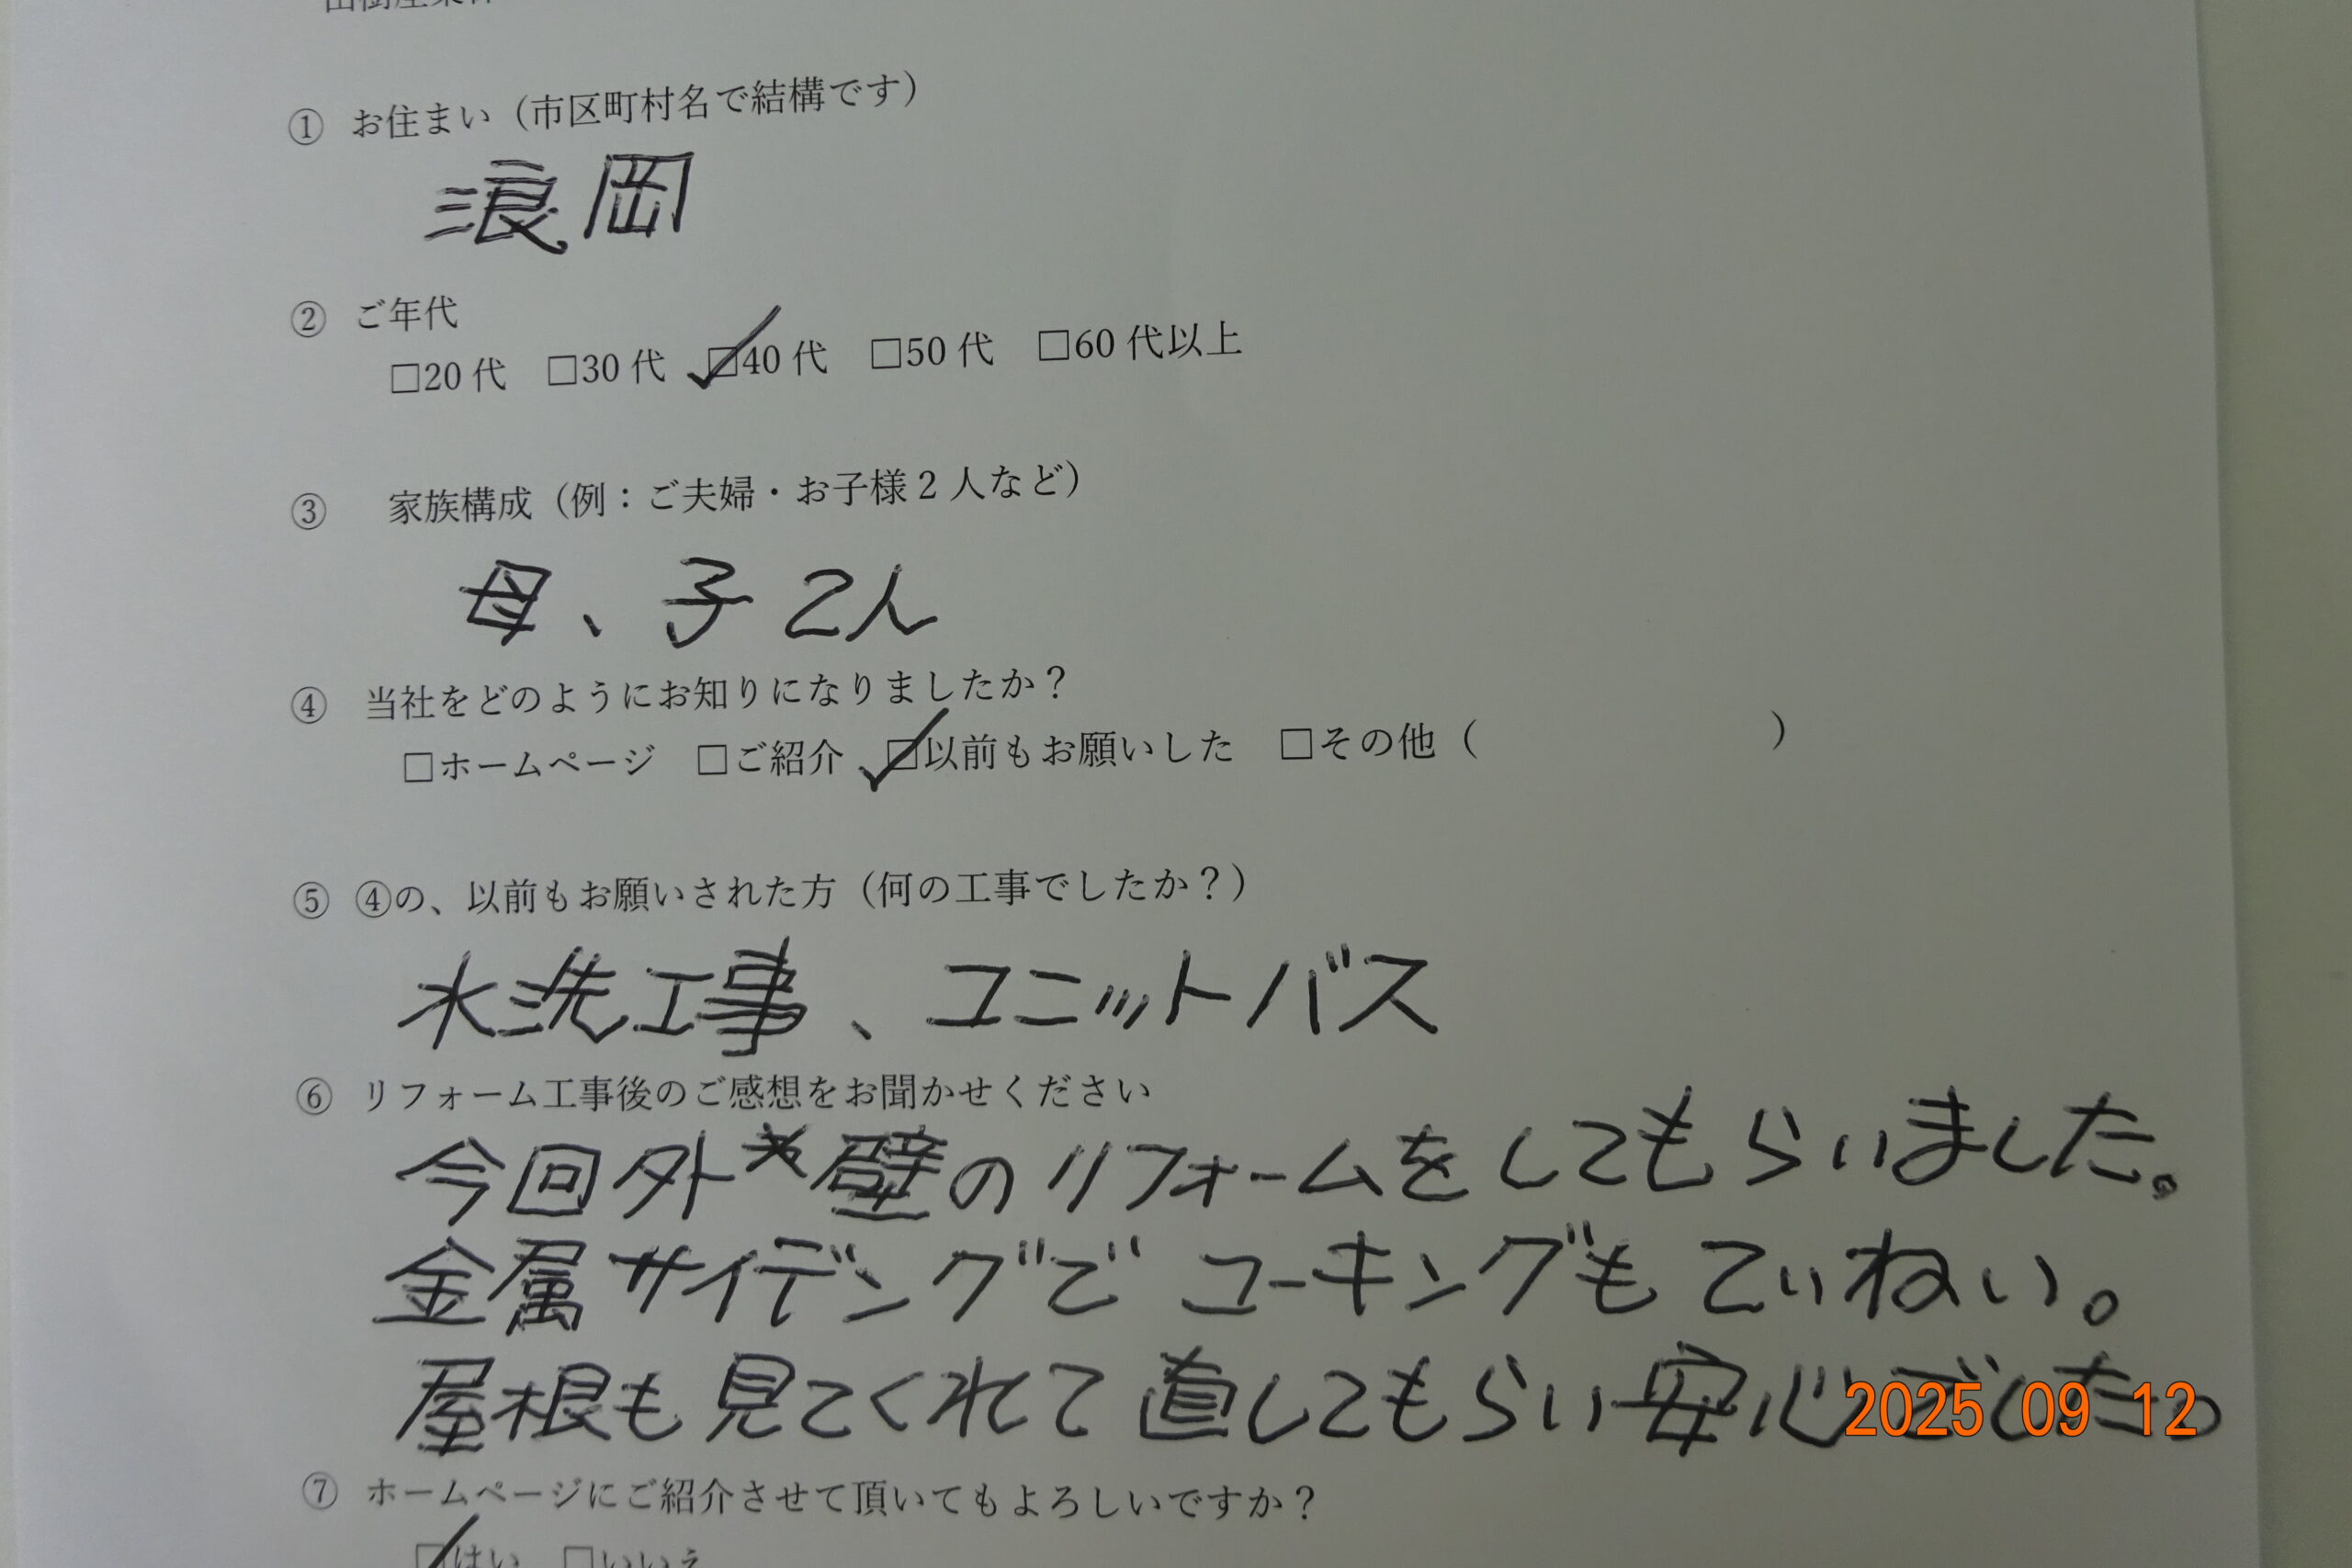 ① お住まい（市区町村名で結構です）
浪岡
② ご年代
□20代 ☑40代 □30代 □50代 □60代以上
③ 家族構成（例：ご夫婦・お子様2人など）
母、子2人
④ 当社をどのようにお知りになりましたか？
□ホームページ □ご紹介 ☑以前もお願いした □その他（ ）
⑤ ④の、以前もお願いされた方（何の工事でしたか？）
水洗工事、ユニットバス
⑥ リフォーム工事後のご感想をお聞かせください
今回外壁のリフォームをしてもらいました。
金属サイディングでコーキングもていねい。
屋根も見てくれて直してもらい安心でした。
2025 09 12
⑦ ホームページにご紹介させて頂いてもよろしいですか？
☑はい □いいえ